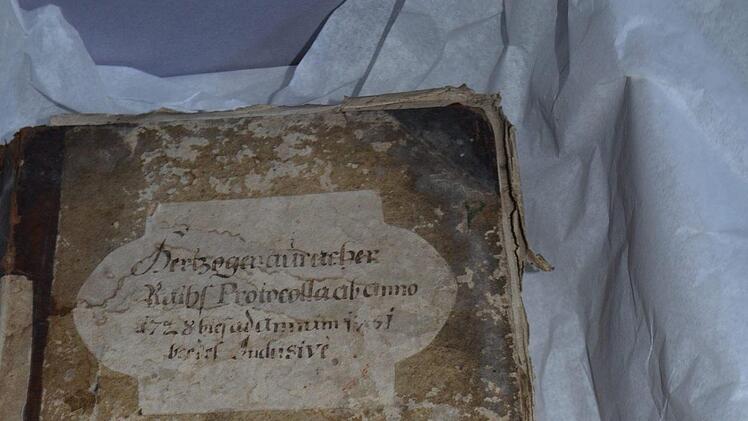 Hertzogenauracher
Raths Protocolla ab anno
1728 bis ad annum 1751
beedes Inclusive